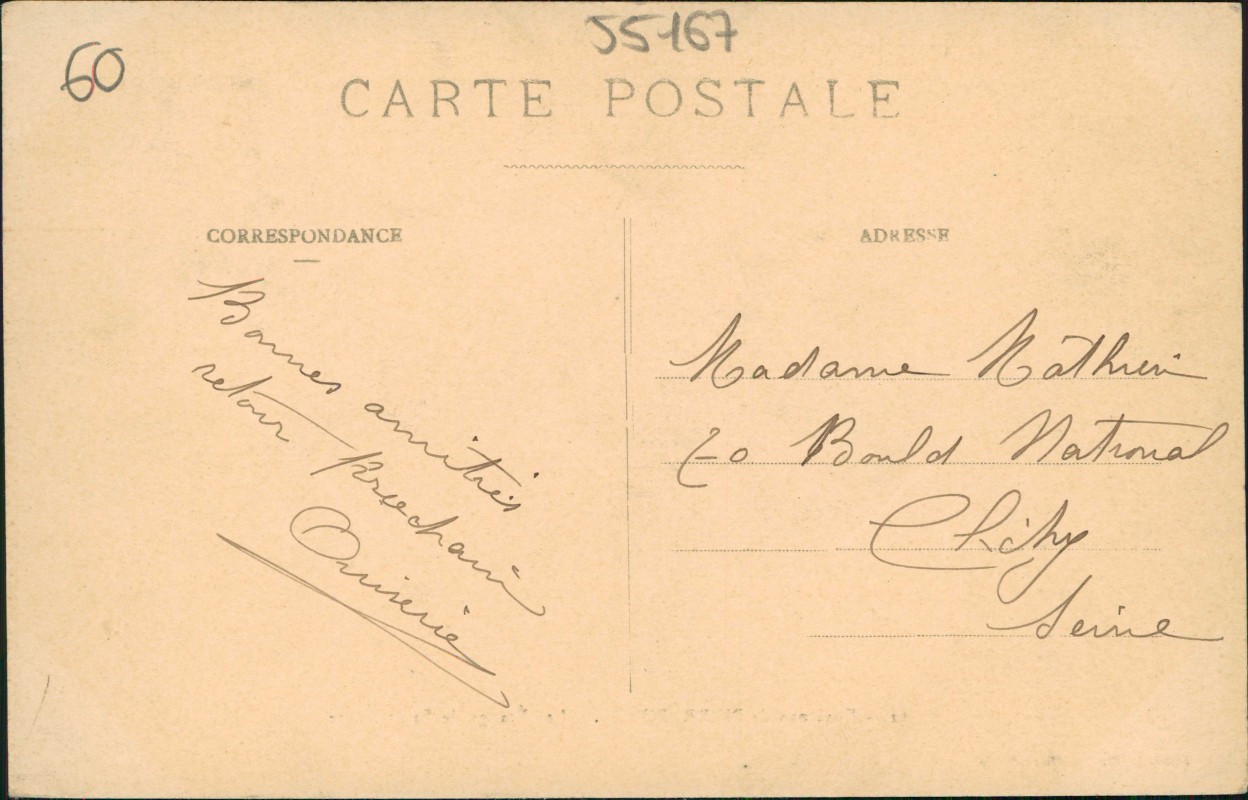 60
55167
CARTE POSTALE
CORRESPONDANCE
ADRESSE
Bonnes amitiés
retour prochain
Madame Mathieu
70 Bould National
Clichy
Seine